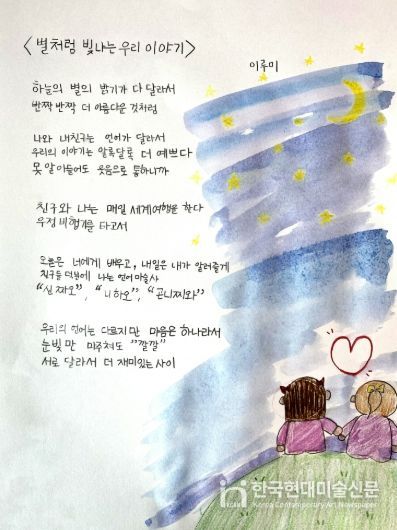 <별처럼 빛나는 우리 이야기>
이루미
하늘의 별의 밝기가 다 달라서
반짝 반짝 더 아름다운 것처럼
나와 내친구는 언어가 달라서
우리의 이야기는 알록달록 더 예쁘다
못 알아들어도 웃음으로 통하니까
친구와 나는 매일 세계여행을 한다
우정 비행기를 타고서
오늘은 너에게 배우고, 내일은 내가 알려줄게
친구들 덕분에 나는 언어마술사
"신짜오", "니하오", "곤니찌와"
우리의 언어는 다르지만 마음은 하나라서
눈빛만 마주쳐도 "깔깔"
서로 달라서 더 재미있는 사이
kcan
한국현대미술신문
Korea Contemporary Art Newspaper